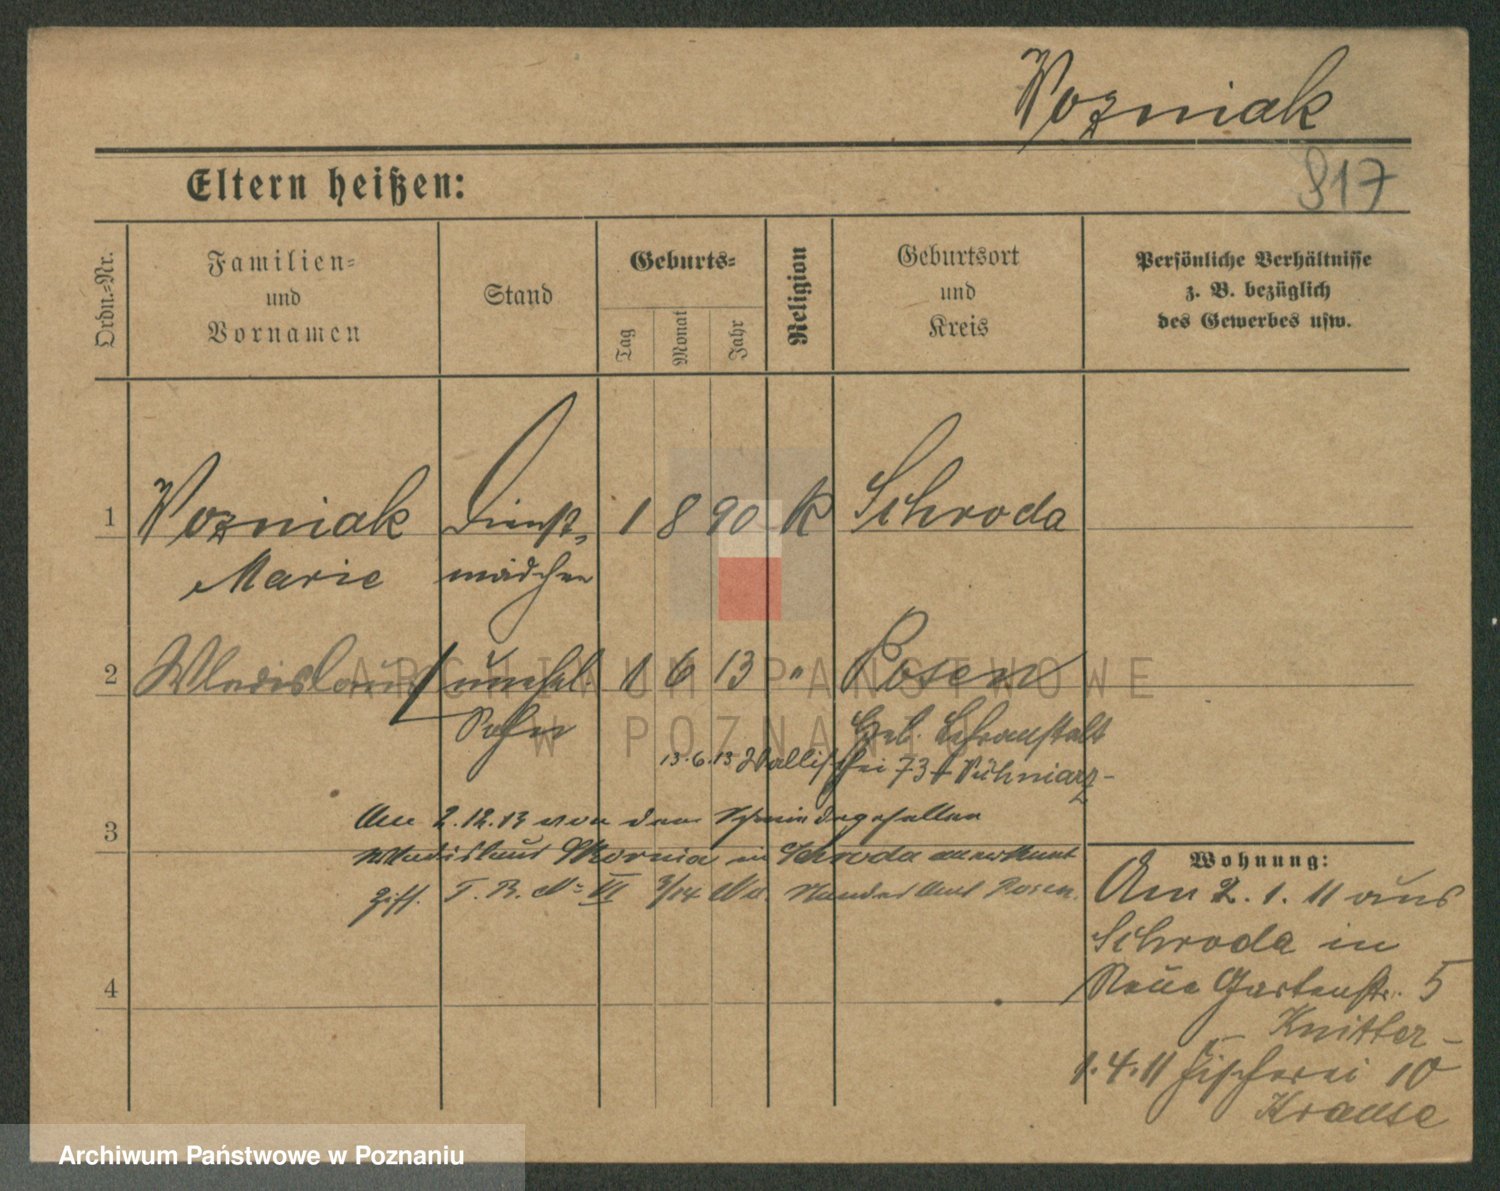 Wozniak
817
Eltern heißen:
Ordn.-Nr.
Familien- und Vornamen
Stand
Geburts-
Tag
Monat
Jahr
Religion
Geburtsort und Kreis
Persönliche Verhältnisse z. B. bezüglich des Gewerbes usw.
1 Wozniak Dienst- 1 8 90 K Schroda
Marie mädchen
2 Wladislaus unehel 1 6 13 " Posen
Sohn
Heb. Lehranstalt
13.6.13 Wallischei 73
3
Am 2.12.13 von dem Schmiedegesellen
Wladislaus in Schroda anerkannt
T. B. No VI Posen.
4
Wohnung:
Am 2. 1. 11 aus
Schroda in
Neue Gartenstr. 5
Knitter -
1.4.11 Fischerei 10
Krause
ARCHIWUM PAŃSTWOWE
W POZNANIU
Archiwum Państwowe w Poznaniu